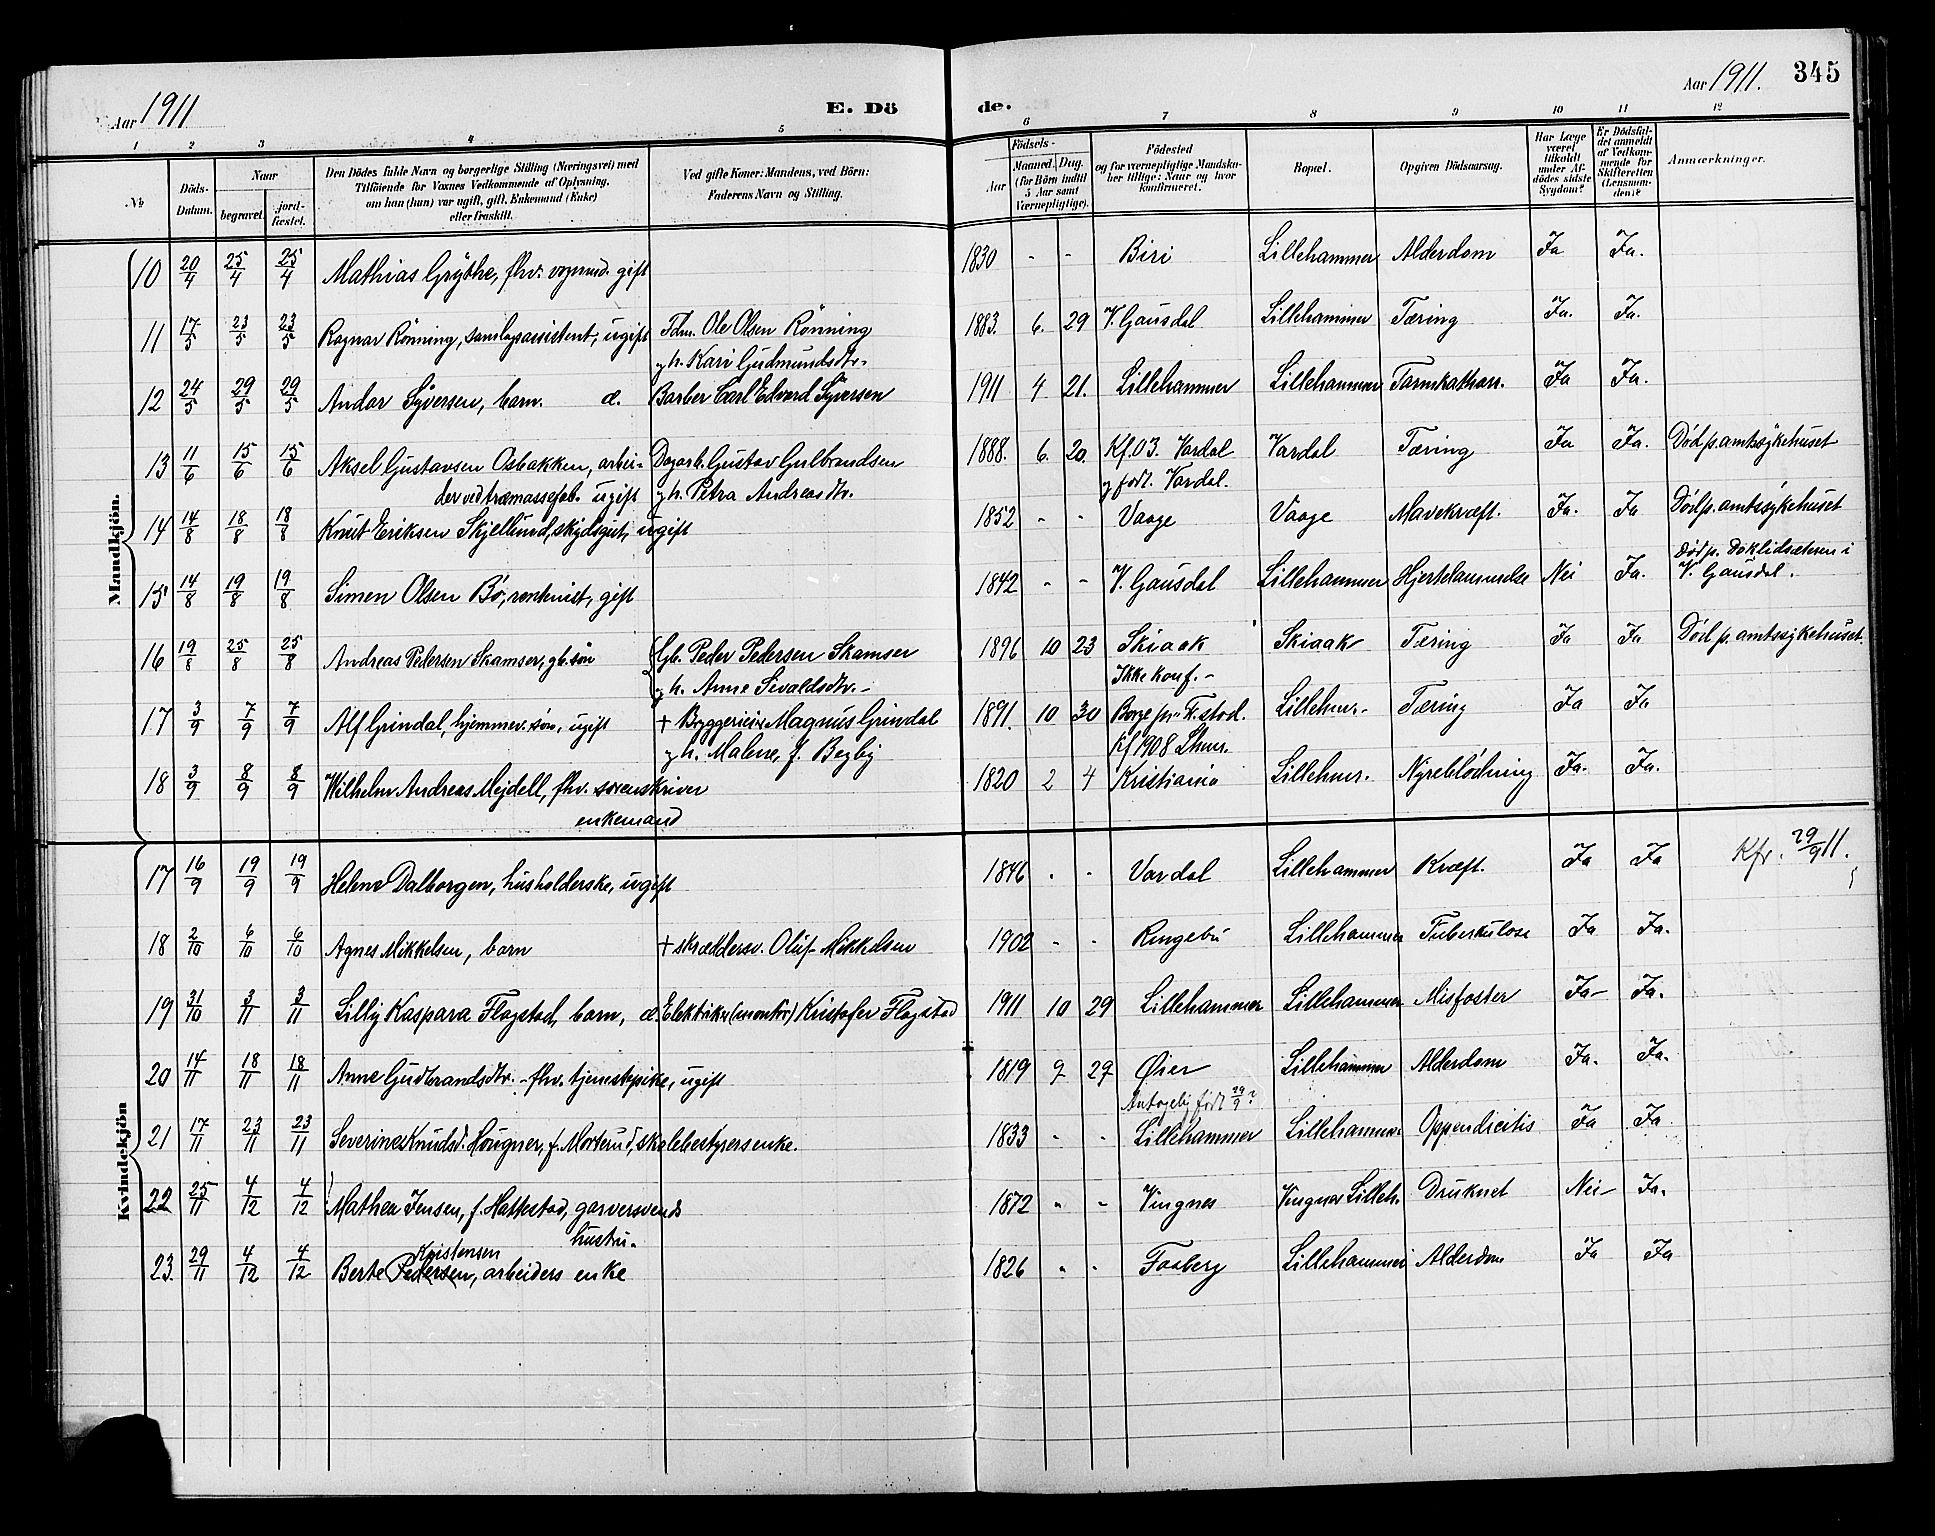 Aar 1911 E. Dö de. Aar 1911. 345
1 2 3 4 5 6 7 8 9 10 11 12
№ Döds-Datum. Naar begravet. jord-fæstet. Den Dödes fulde Navn og borgerlige Stilling (Næringsvei) med Tilföiende for Voxnes Vedkommende af Oplysning, om han (hun) var ugift, gift, Enkemand (Enke) eller fraskilt. Ved gifte Koner: Mandens, ved Börn: Faderens Navn og Stilling. Födsels- Aar Maaned. Dag. (for Börn indtil 5 Aar samt Værnepligtige). Födested og for værnepligtige Mandska-ber tillige: Naar og hvor konfirmeret. Bopæl. Opgiven Dödsaarsag. Har Læge været tilkaldt under Af-dödes sidste Sygdom? Er Dödsfal-det anmeldt af Vedkom-mende for Skifteretten (Lensman-den)? Anmærkninger.
Mandkjön.
10 20/4 25/4 25/4 Mathias Grythe, fhv. vognmd. gift 1830 - - Biri Lillehammer Alderdom Ja Ja.
11 17/5 23/5 23/5 Ragnar Rönning, samlagsassistent, ugift Fdm. Ole Olsen Rönning 1883. 6. 29 V. Gausdal Lillehammer Tæring Ja. Ja.
og h. Kari Gudmundsdtr.
12 24/5 29/5 29/5 Andor Syversen, barn. æ. Barber Carl Edvard Syversen 1911 4 21. Lillehammer Lillehammer Tarmkatharr. Ja Ja.
13 11/6 15/6 15/6 Aksel Gustavsen Osbakken, arbei- Dagarb. Gustav Gulbrandsen 1888. 6. 20. Kf. 03. Vardal Vardal Tæring Ja Ja. Död p. amtssykehuset
der ved træmassefab. ugift og h. Petra Andreasdtr. og født. Vardal.
14 14/8 18/8 18/8 Knut Eriksen Skjellund, skydsgut, ugift 1852 - - Vaage Vaage Mavekræft. Ja. Ja Död p. amtssykehuset
15 14/8 19/8 19/8 Simen Olsen Bö, rentenist, gift 1842 - - V. Gausdal Lillehammer Hjertelammelse Nei Ja. Död p. Doklidsæteren i V. Gausdal.
16 19/8 25/8 25/8 Andreas Pedersen Skamser, gb. søn Gb. Peder Pedersen Skamser 1896 10 23 Skiaak Skiaak Tæring Ja Ja Död p. amtssykehuset
og h. Anne Sivaldsdtr. Ikke konf.
17 3/9 7/9 7/9 Alf Grindal, hjemmev. søn, ugift + Bryggerieier Magnus Grindal 1891. 10 30 Borge pr. Fr.stad. Lillehmr. Tæring Ja Ja
og h. Malene, f. Begby Kf 1908 Lhmr.
18 3/9 8/9 8/9 Wilhelm Andreas Mejdell, fhv. sorenskriver 1820 2 4 Kristiania Lillehmr. Nyreblödning Ja. Ja.
enkemand
Kvindekjön
17 16/9 19/9 19/9 Helene Dalborgen, husholderske, ugift 1846 - - Vardal Lillehammer Kræft. Ja Ja Kfr. 29/9 11.
18 2/10 6/10 6/10 Agnes Mikkelsen, barn + skræddersv. Oluf Mikkelsen 1902 - - Ringebu Lillehammer Tuberkulose Ja Ja.
19 31/10 3/11 3/11 Lilly Kaspara Flagstad, barn, æ. Elektriker (montör) Kristofer Flagstad 1911 10 29 Lillehammer Lillehammer Misfoster Ja Ja.
20 14/11 18/11 18/11 Anne Gudbrandsdtr. - fhv. tjenestepike, ugift 1819 9 29 Øier Lillehammer Alderdom Ja. Ja.
Antagelig født 29/9?
21 17/11 23/11 23/11 Severine Knudsd. Hougner, f. Mortrud, skolebestyrers enke. 1833 - - Lillehammer Lillehammer Appendicitis Ja Ja.
22 25/11 4/12 4/12 Mathea Jensen, f. Hattestad, garversvends 1872 - - Vingnes Vingnes Lilleh. Druknet Nei Ja.
hustru.
Kristensen
23. 29/11 4/12 4/12 Berte Pedersen, arbeiders enke 1826 - - Faaberg Lillehammer Alderdom Ja Ja